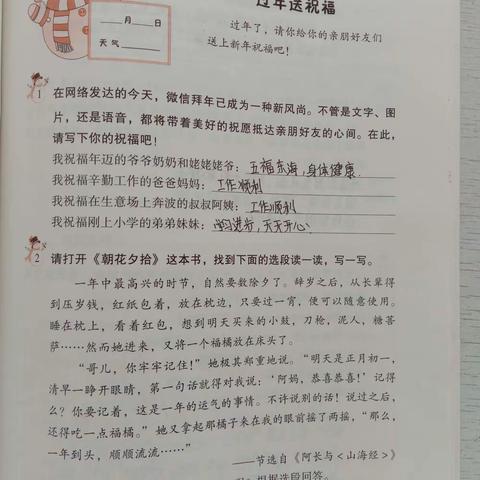 过年送祝福
过年了，请你给你的亲朋好友们
送上新年祝福吧！
___月___日
天气
1 在网络发达的今天，微信拜年已成为一种新风尚。不管是文字、图
片，还是语音，都将带着美好的祝愿抵达亲朋好友的心间。在此，
请写下你的祝福吧！
我祝福年迈的爷爷奶奶和姥姥姥爷：五福东海，身体健康.
我祝福辛勤工作的爸爸妈妈：工作顺利
我祝福在生意场上奔波的叔叔阿姨：工作顺利
我祝福刚上小学的弟弟妹妹：学习进步，天天开心
2 请打开《朝花夕拾》这本书，找到下面的选段读一读，写一写。
一年中最高兴的时节，自然要数除夕了。辞岁之后，从长辈得
到压岁钱，红纸包着，放在枕边，只要过一宵，便可以随意使用。
睡在枕上，看着红包，想到明天买来的小鼓，刀枪，泥人，糖菩
萨……然而她进来，又将一个福橘放在床头了。
“哥儿，你牢牢记住！”她极其郑重地说。“明天是正月初一，
清早一睁开眼睛，第一句话就得对我说：‘阿妈，恭喜恭喜！’记得
么？你要记着，这是一年的运气的事情。不许说别的话！说过之后，
还得吃一点福橘。”她又拿起那橘子来在我的眼前摇了两摇，“那么，
一年到头，顺顺流流……”
——节选自《阿长与<山海经>》
根据选段回答。